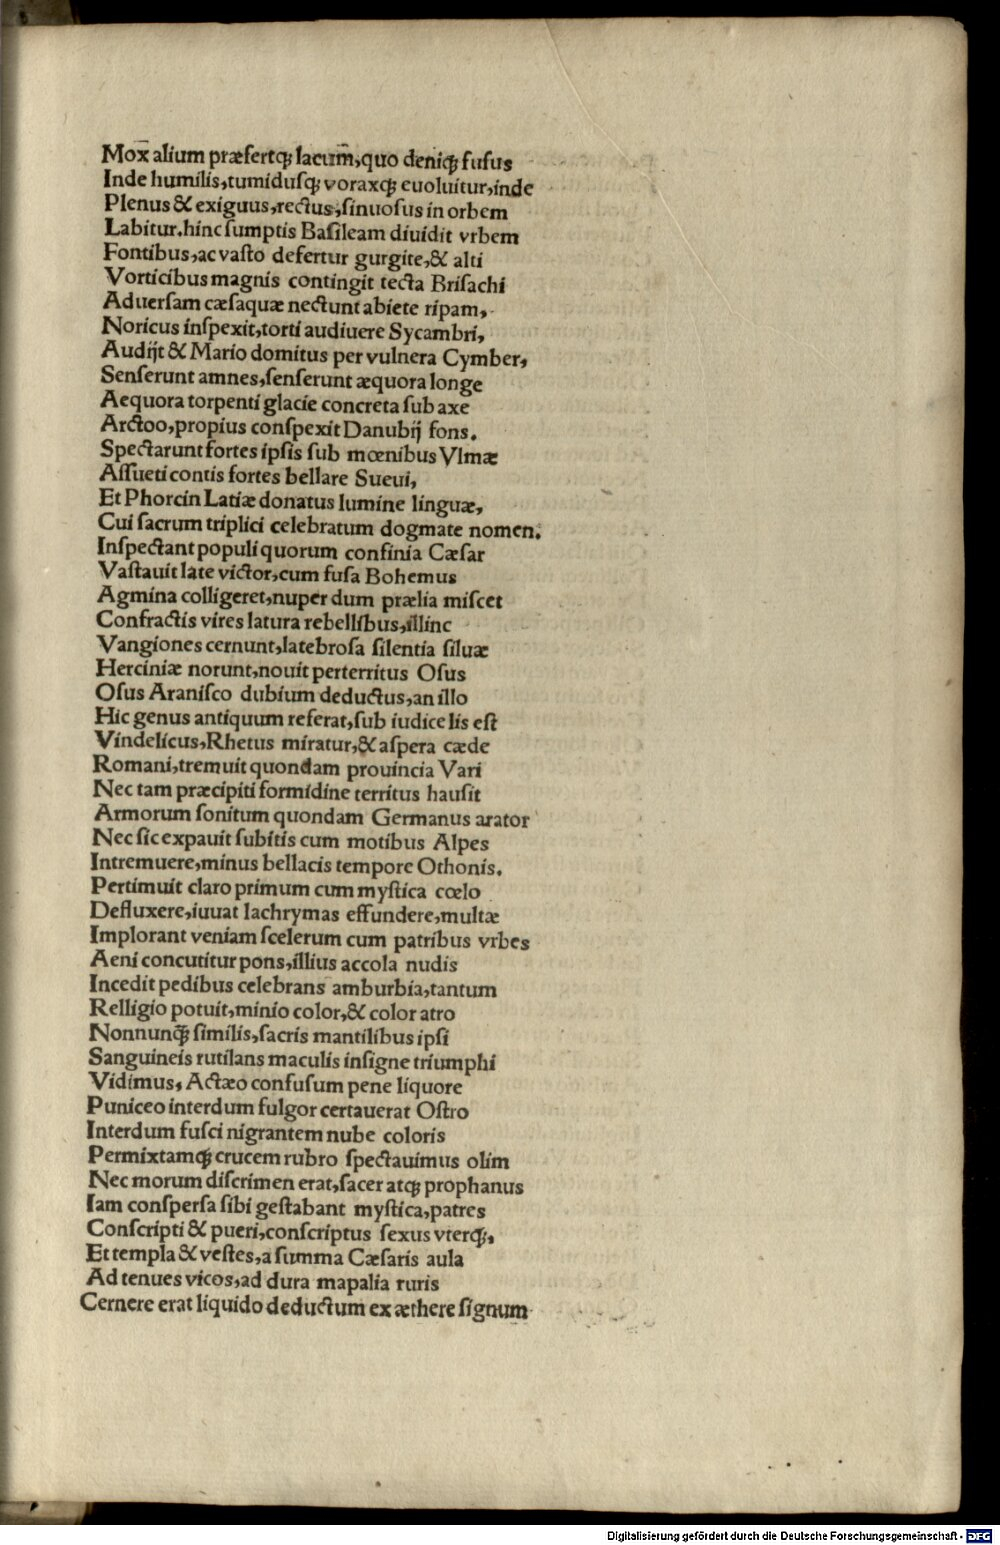 Mox̄ alium præfertqꝫ lacum̄,quo deniqꝫ fusus
Inde humilis,tumidusqꝫ voraxqꝫ euoluitur,inde
Plenus & exiguus,rectus,sinuosus in orbem
Labitur.hinc sumptis Basileam diuidit vrbem
Fontibus,ac vasto defertur gurgite,& alti
Vorticibus magnis contingit tecta Brisachi
Aduersam cæsaquæ nectunt abiete ripam,
Noricus inspexit,torti audiuere Sycambri,
Audijt & Mario domitus per vulnera Cymber,
Senserunt amnes,senserunt æquora longe
Aequora torpenti glacie concreta sub axe
Arctoo,propius conspexit Danubij fons.
Spectarunt fortes ipsis sub mœnibus Vlmæ
Assueti contis fortes bellare Sueui,
Et Phorcin Latiæ donatus lumine linguæ,
Cui sacrum triplici celebratum dogmate nomen.
Inspectant populi quorum confinia Cæsar
Vastauit late victor,cum fusa Bohemus
Agmina colligeret,nuper dum prælia miscet
Confractis vires latura rebellibus,illinc
Vangiones cernunt,latebrosa silentia siluæ
Herciniæ norunt,nouit perterritus Osus
Osus Aranisco dubium deductus,an illo
Hic genus antiquum referat,sub iudice lis est
Vindelicus,Rhetus miratur,& aspera cæde
Romani,tremuit quondam prouincia Vari
Nec tam præcipiti formidine territus hausit
Armorum sonitum quondam Germanus arator
Nec sic expauit subitis cum motibus Alpes
Intremuere,minus bellacis tempore Othonis.
Pertimuit claro primum cum mystica cœlo
Defluxere,iuuat lachrymas effundere,multæ
Implorant veniam scelerum cum patribus vrbes
Aeni concutitur pons,illius accola nudis
Incedit pedibus celebrans amburbia,tantum
Relligio potuit,minio color,& color atro
Nonnunqꝫ̄ similis,sacris mantilibus ipsi
Sanguineis rutilans maculis insigne triumphi
Vidimus, Actæo confusum pene liquore
Puniceo interdum fulgor certauerat Ostro
Interdum fusci nigrantem nube coloris
Permixtamqꝫ crucem rubro spectauimus olim
Nec morum discrimen erat,sacer atqꝫ prophanus
Iam conspersa sibi gestabant mystica,patres
Conscripti & pueri,conscriptus sexus vterqꝫ,
Et templa & vestes,a summa Cæsaris aula
Ad tenues vicos,ad dura mapalia ruris
Cernere erat liquido deductum ex æthere signum
Digitalisierung gefördert durch die Deutsche Forschungsgemeinschaft - DFG